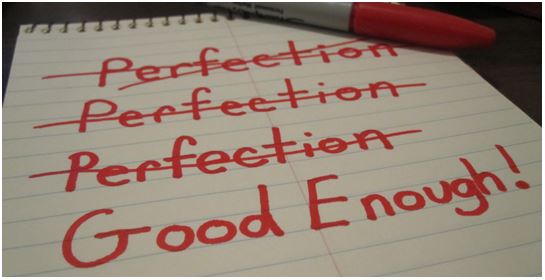 Perfection
Perfection
Perfection
Good Enough!